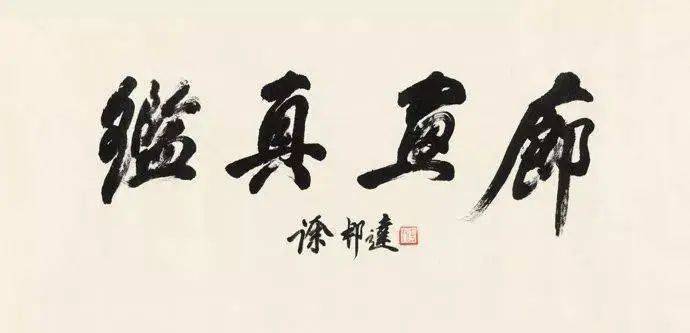 鑑真画廊
徐邦達